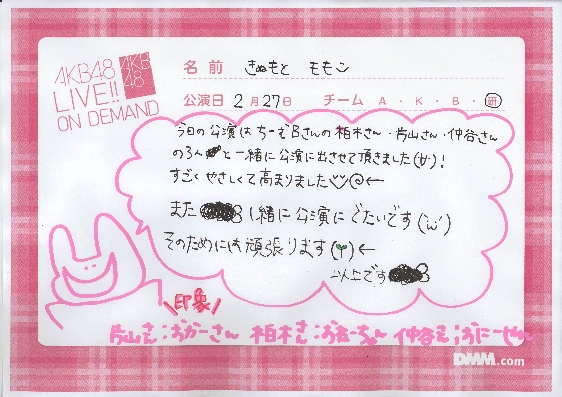 AKB48
LIVE!!
ON DEMAND
AKB
48
名前 きぬもと ももこ
公演日 2月27日 チーム A・K・B・研
今日の公演はちーむBさんの柏木さん・片山さん・仲谷さん
の3人と一緒に公演に出させて頂きました(∀)!
すごくやさしくて高まりました←
また1緒に公演にでたいです(´ω`)
そのためには頑張ります(Υ)←
以上です
\印象/
片山さん:おかーさん 柏木さん:おねーちゃん 仲谷さん:おにーちゃん
DMM.com